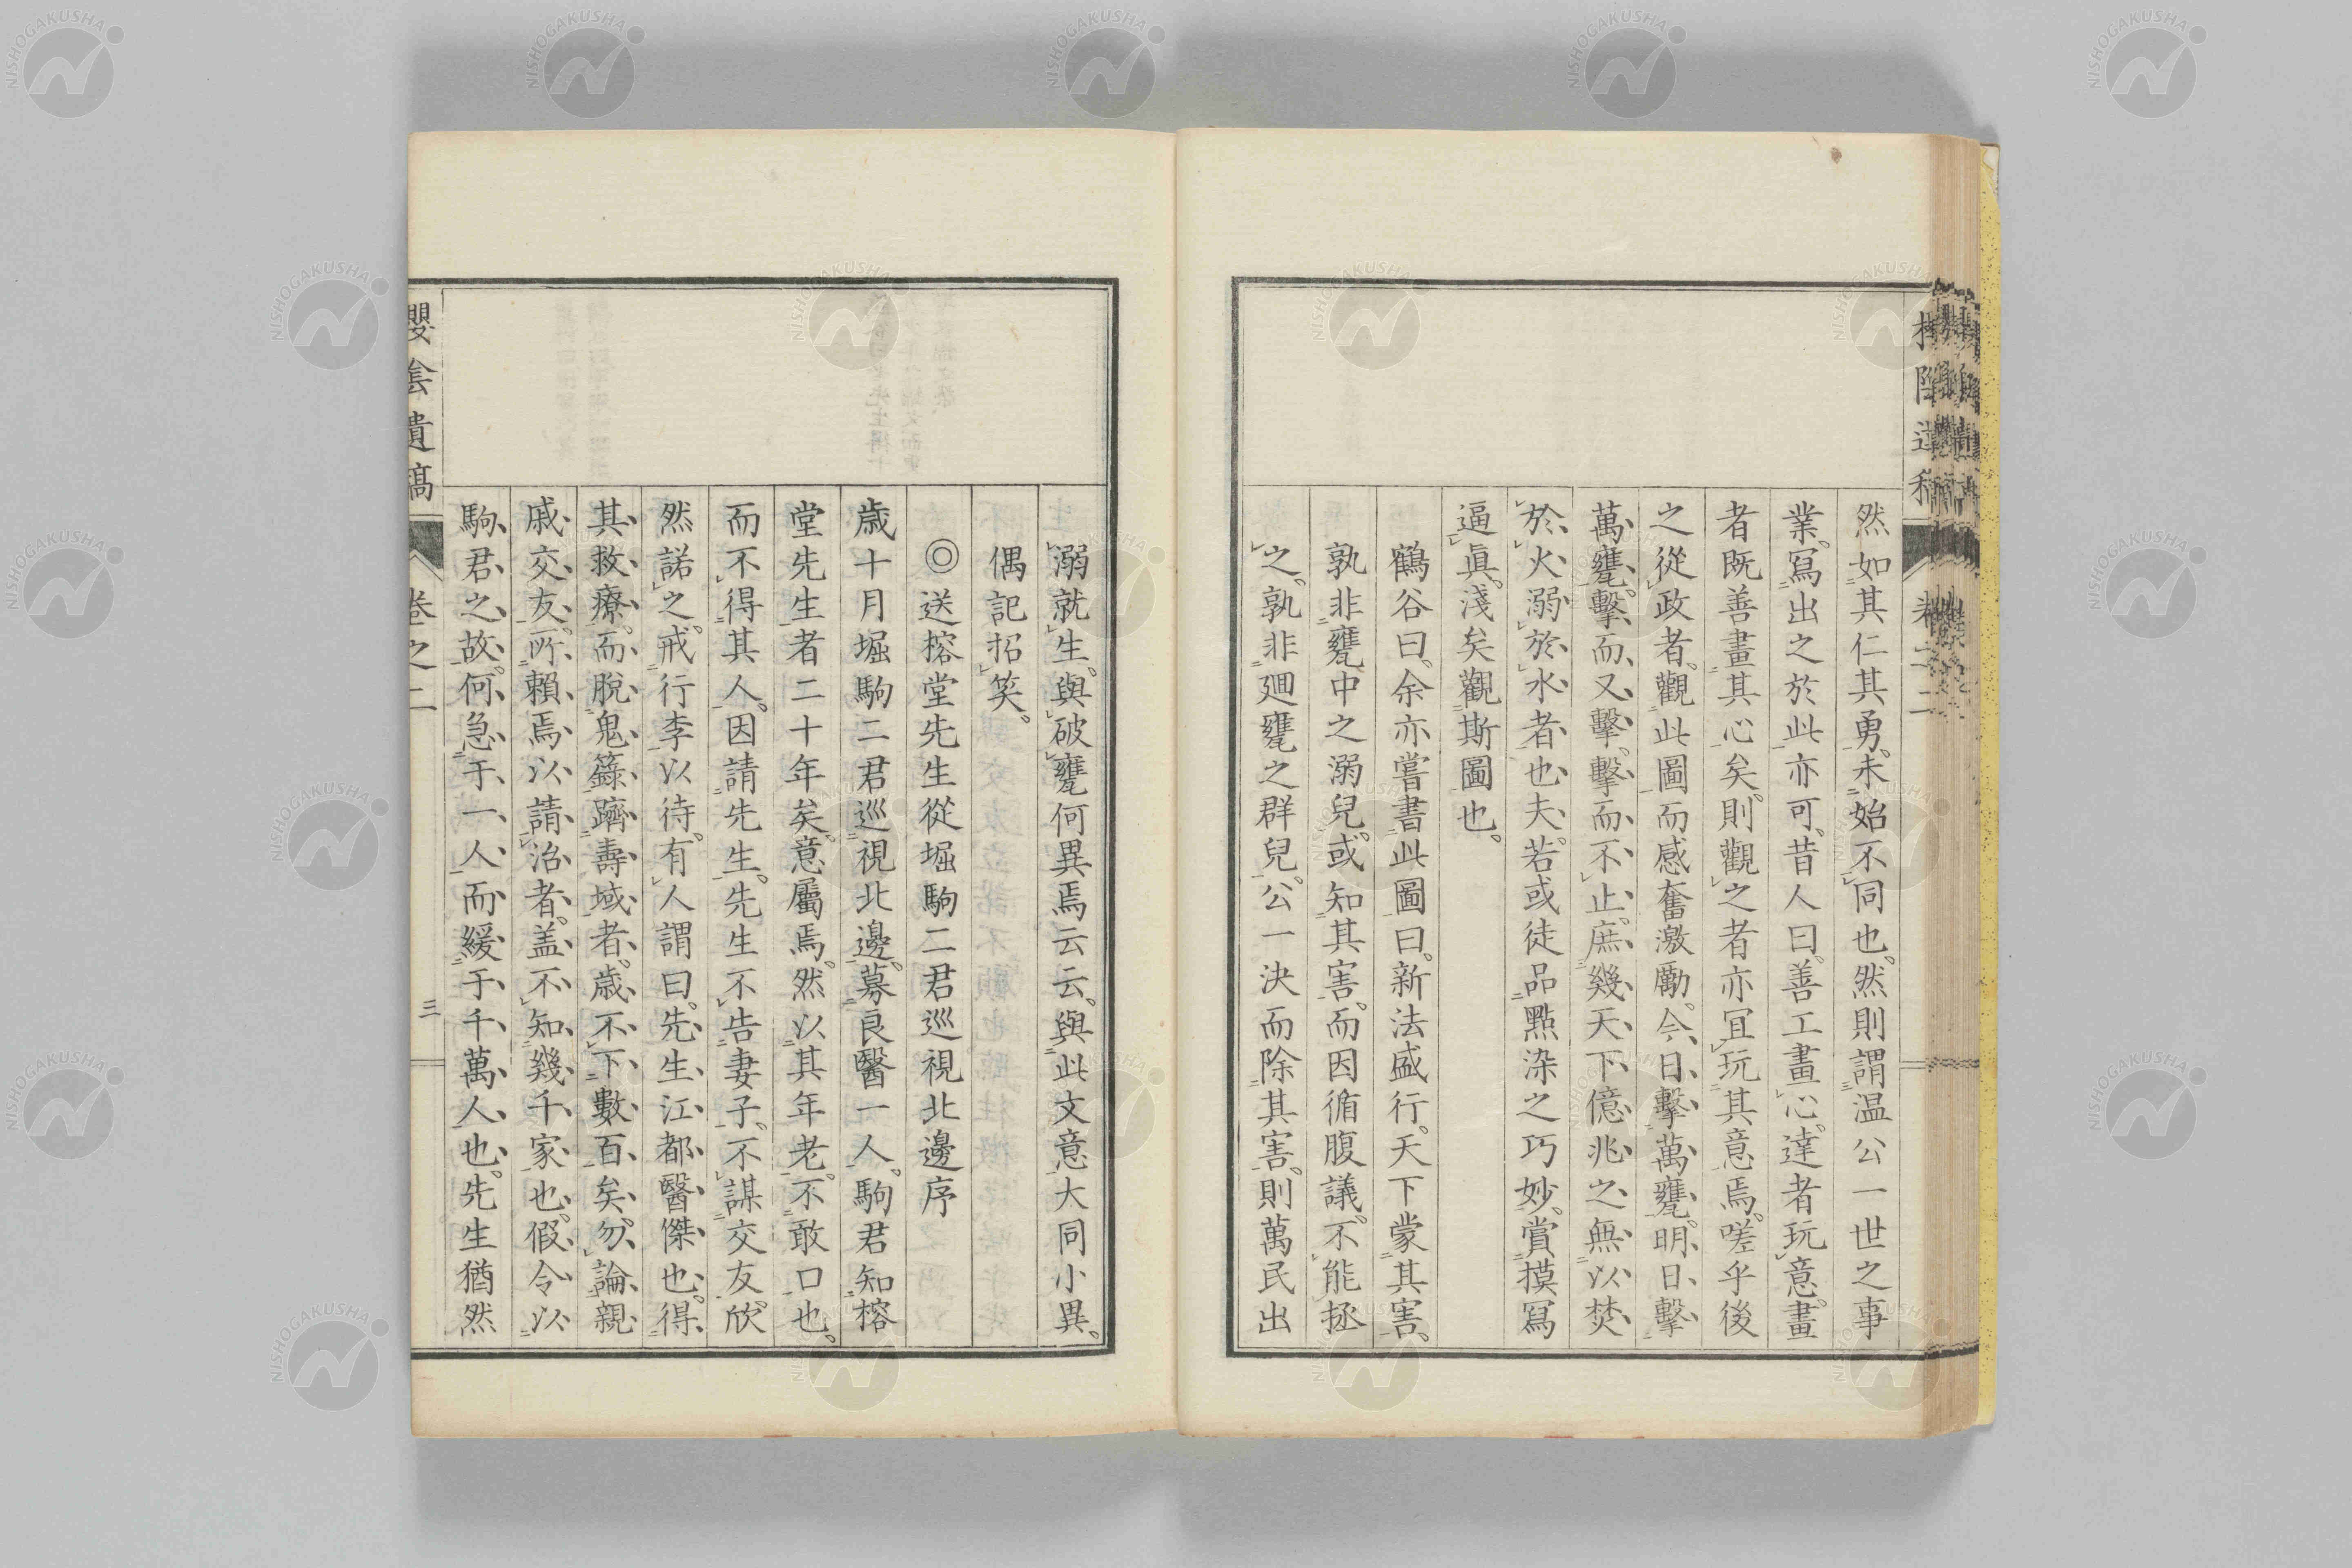 然如其仁其勇。未始不同也。然則謂温公一世之事
業。寫出之於此亦可。昔人曰。善工畫心。達者玩意。畫
者既善畫其心矣。則觀之者亦冝玩其意焉。嗟乎後
之從政者。觀此圖而感奮激勵。今日擊萬甕。明日擊
萬甕。擊而又擊。擊而不止。庶幾天下億兆之無以焚
於火溺於水者也。夫若或徒品點染之巧妙。賞摸寫
逼眞。淺矣觀斯圖也。
鶴谷曰。余亦嘗書此圖曰。新法盛行。天下蒙其害。
孰非甕中之溺兒。或知其害。而因循腹議。不能拯
之。孰非廽甕之群兒。公一決而除其害。則萬民出
溺就生。與破甕何異焉云云。與此文意大同小異。
偶記招笑。
◎送榕堂先生從堀駒二君巡視北邊序
歳十月堀駒二君巡視北邊。募良醫一人。駒君知榕
堂先生者二十年矣。意屬焉。然以其年老。不敢口也。
而不得其人。因請先生。先生不告妻子。不謀交友。欣
然諾之。戒行李以待。有人謂曰。先生江都醫傑也。得
其救療。而脫鬼籙躋壽域者。歳不下數百矣。勿論親
戚交友。所賴焉以請治者。盖不知幾千家也。假令以
駒君之故。何急于一人而緩于千萬人也。先生猶然
櫻陰遺稿
卷之二
三